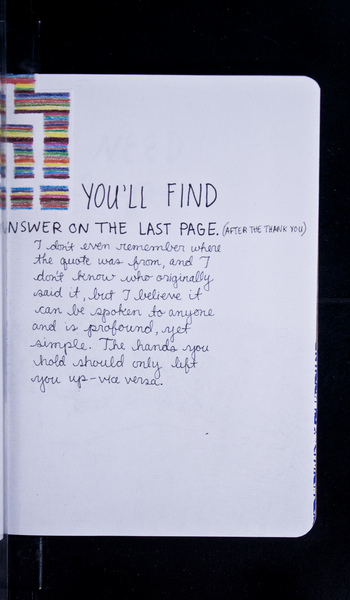 YOU'LL FIND
ANSWER ON THE LAST PAGE. (AFTER THE THANK YOU)
I don't even remember where
the quote was from, and I
don't know who originally
said it, but I believe it
can be spoken to anyone
and is profound, yet
simple. The hands you
hold should only lift
you up-vice versa.